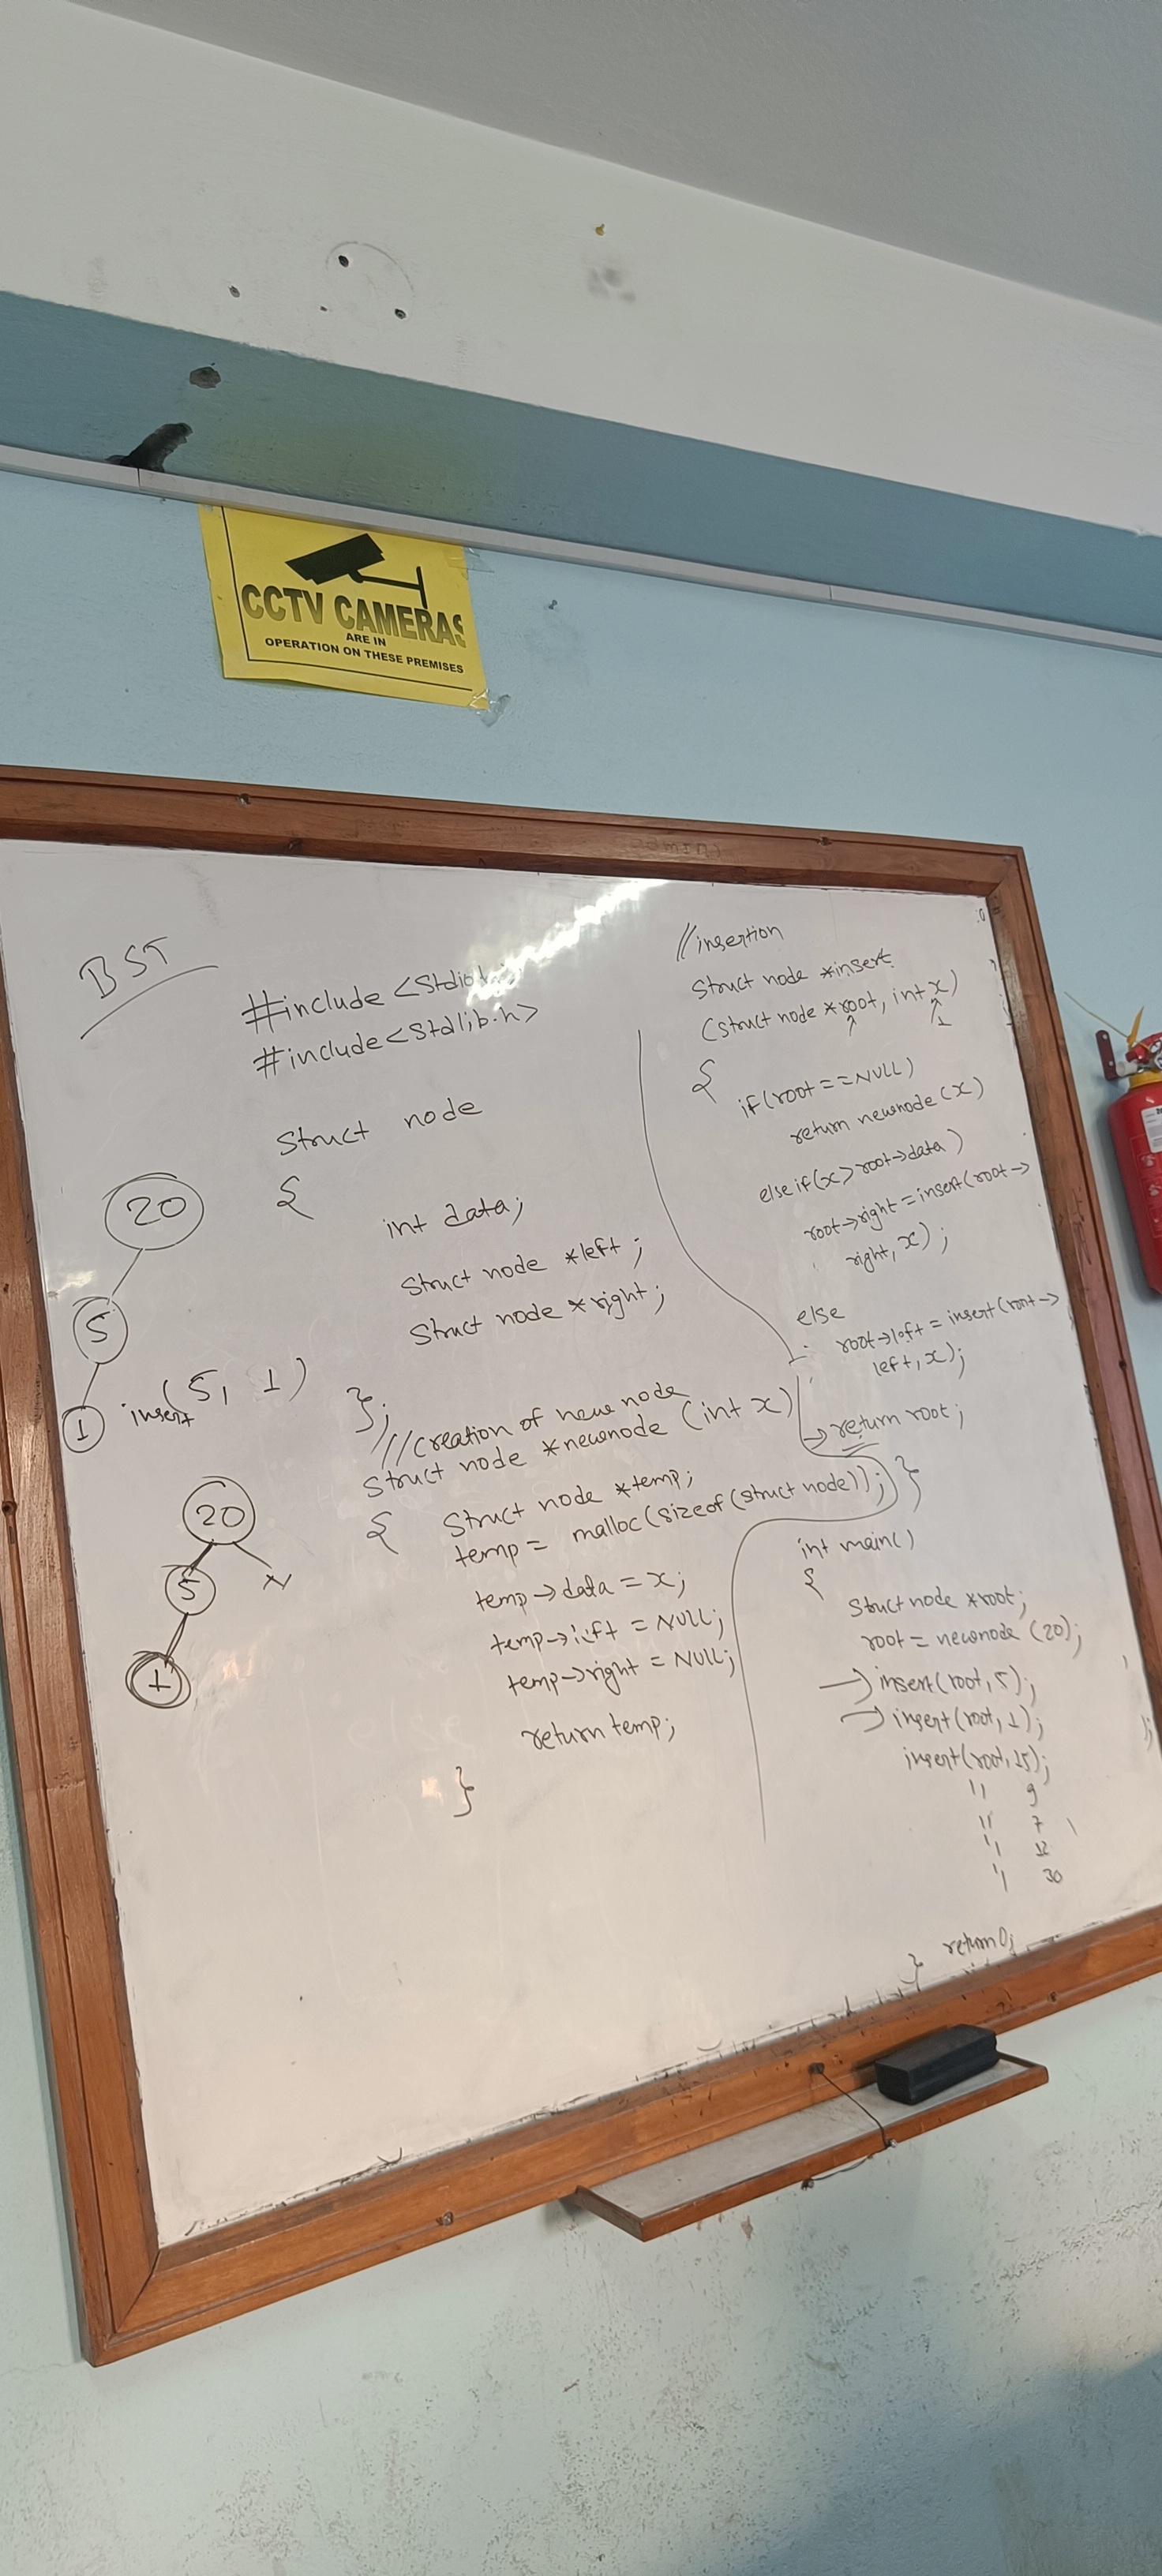 CCTV CAMERAS
ARE IN
OPERATION ON THESE PREMISES
BST
#include <stdio.h>
#include<stdlib.h>
struct node
{
int data;
struct node *left;
struct node *right;
};
//creation of new node
struct node *newnode (int x)
{ struct node *temp;
temp = malloc(sizeof(struct node));
temp->data = x;
temp->left = NULL;
temp->right = NULL;
return temp;
}
20
5
1
insert (5, 1)
20
5 N
1
//insertion
struct node *insert
(struct node *root, int x)
1
{
if(root==NULL)
return newnode(x)
else if(x>root->data)
root->right=insert(root->
right,x);
else
root->left = insert(root->
left,x);
->return root;
}
int main()
{
struct node *root;
root = newnode (20);
->insert(root,5);
->insert(root,1);
insert(root,15);
" 9
" 7
" 12
" 30
return 0;
}